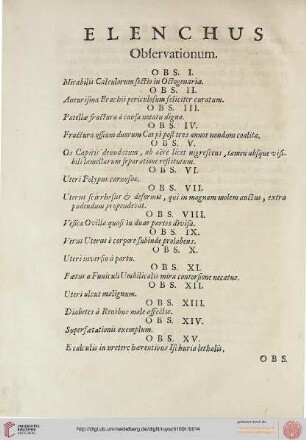 ELENCHUS
Observationum.
OBS. I.
Mirabilis Calculorum sectio in Octogenaria.
OBS. II.
Aneurisma Brachii periculosum feliciter curatum.
OBS. III.
Patellæ fractura à causa notatu digna.
OBS. IV.
Fractura ossium duorum Carpi post tres annos nondum coalita.
OBS. V.
Os Capitis denudatum, ab aëre licet nigrescens, tamen absque visi-
bili lamellarum separatione restitutum.
OBS. VI.
Uteri Polypus carnosus.
OBS. VII.
Uterus scirrhosus & deformis, qui in magnam molem auctus, extra
pudendum propendebat.
OBS. VIII.
Vesica Ovilla quasi in duas partes divisa.
OBS. IX.
Verus Uterus à corpore subinde prolabens.
OBS. X.
Uteri inversio à partu.
OBS. XI.
Fœtus a Funiculi Umbilicalis mira contorsione necatus.
OBS. XII.
Uteri ulcus malignum.
OBS. XIII.
Diabetes à Renibus male affectis.
OBS. XIV.
Superfætationis exemplum.
OBS. XV.
E calculis in uretere hærentibus Ischuria lethalis.
OBS.
UNIVERSITÄTS-
BIBLIOTHEK
HEIDELBERG
http://digi.ub.uni-heidelberg.de/diglit/ruysch1691/0014